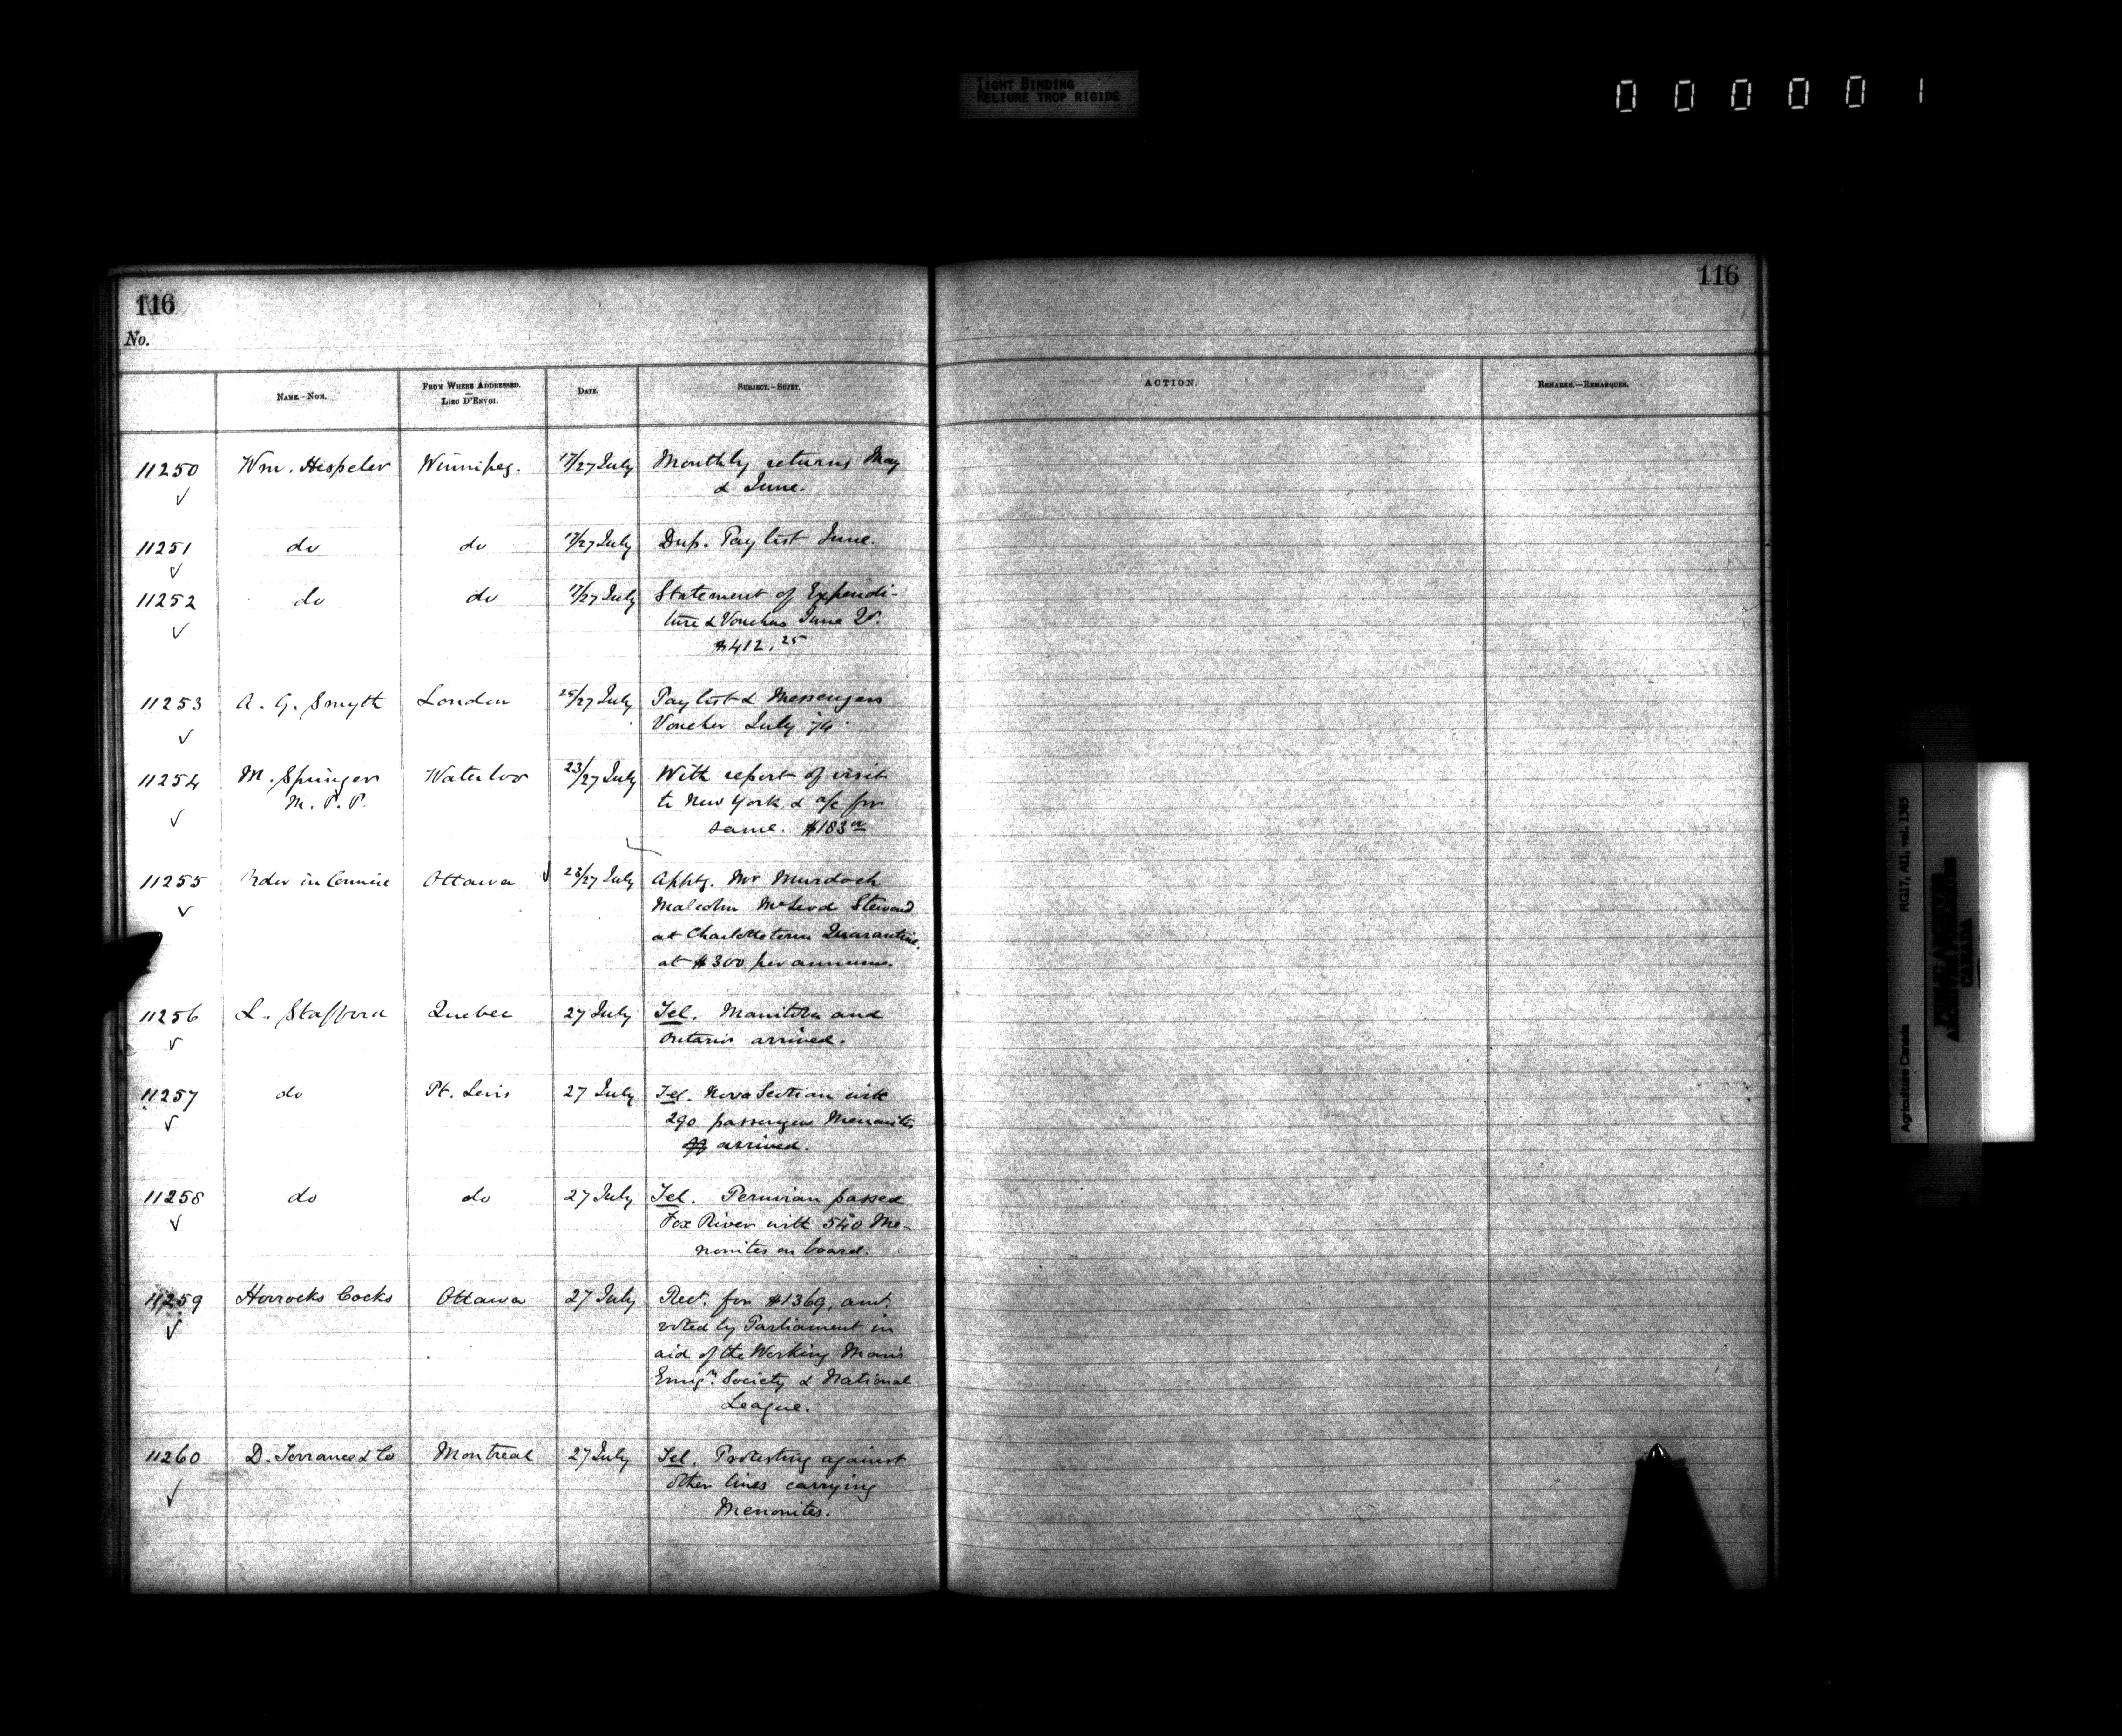 TIGHT BINDING
RELIURE TROP RIGIDE
000001
116
116
No.
NAME.—NOM.
FROM WHERE ADDRESSED.
—
LIEU D'ENVOI.
DATE.
SUBJECT.—SUJET.
ACTION.
REMARKS.—REMARQUES.
11250 Wm. Hespeler Winnipeg. 17/27 July Monthly returns May
& June.
11251 do do 17/27 July Dup. Pay list June.
11252 do do 17/27 July Statement of Expendi-
ture & Vouchers June
$412.25
11253 A. G. Smyth London 25/27 July Pay list & Messengers
Voucher July 74.
11254 M. Springer Waterloo 23/27 July With report of visit
M. P. P. to New York & a/c for
same. $183
11255 Order in Council Ottawa 23/27 July Apptg. Mr Murdoch
Malcolm McLeod Steward
at Charlottetown Quarantine.
at $300 per annum.
11256 L. Stafford Quebec 27 July Tel. Manitoba and
Ontario arrived.
11257 do Pt. Levis 27 July Tel. Nova Scotian with
290 passengers Menonites
arrived.
11258 do do 27 July Tel. Peruvian passed
Fox River with 540 Me-
nonites on board.
11259 Horrocks Cocks Ottawa 27 July Rect. for $1369, amt.
voted by Parliament in
aid of the Working Man's
Emign. Society & National
League.
11260 D. Torrance & Co Montreal 27 July Tel. Protesting against
other lines carrying
Menonites.
Agriculture Canada RG17, AII, vol. 1385
PUBLIC ARCHIVES
ARCHIVES PUBLIQUES
CANADA